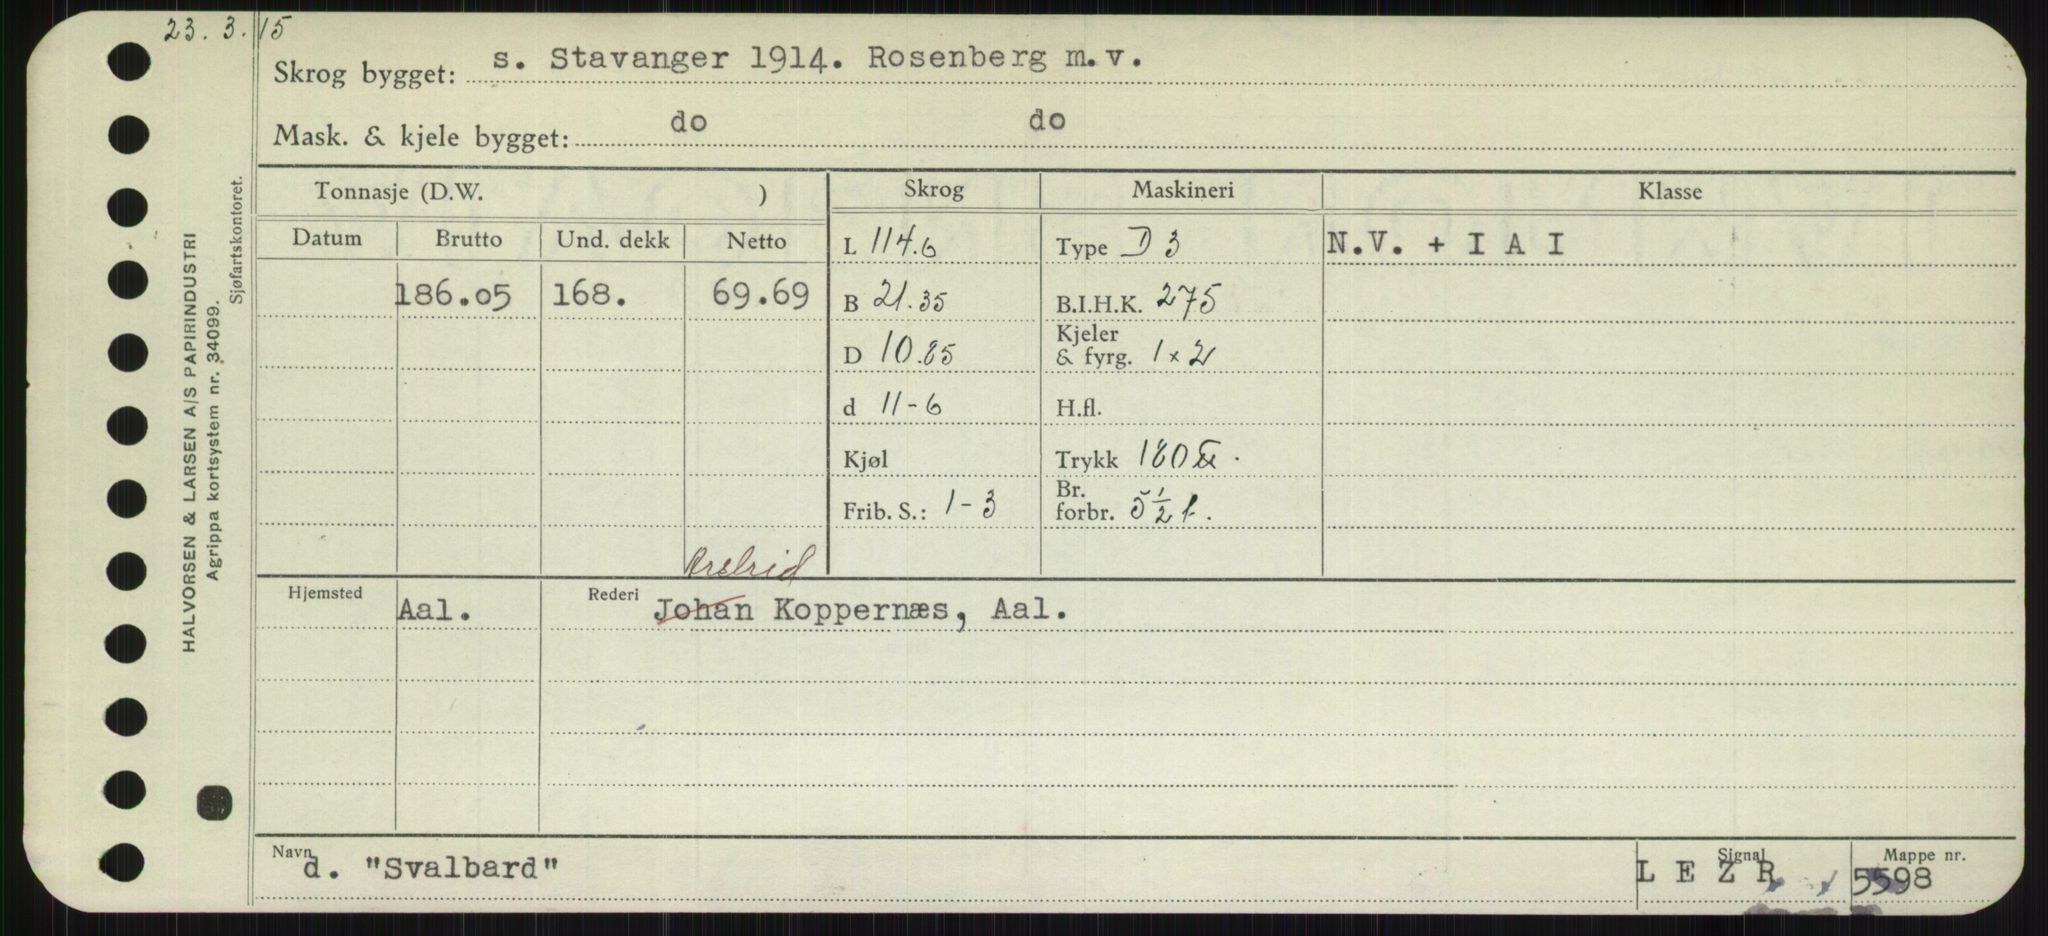 23. 3. 15
Skrog bygget: s. Stavanger 1914. Rosenberg m.v.
Mask. & kjele bygget: do do
HALVORSEN & LARSEN A/S PAPIRINDUSTRI
Agrippa kortsystem nr. 34099.
Sjøfartskontoret.
Tonnasje (D.W. ) Skrog Maskineri Klasse
Datum Brutto Und. dekk Netto L 114.6 Type D 3 N.V. + I A I
186.05 168. 69.69 B 21.35 B.I.H.K. 275
D 10.85 Kjeler & fyrg. 1 x 2
d 11-6 H.fl.
Kjøl Trykk 180 ℔.
Frib. S.: 1-3 Br. forbr. 5 1/2 t.
Hjemsted Aal. Rederi Johan Koppernæs, Aal.
Navn d. "Svalbard" Signal L E Z R Mappe nr. 5598